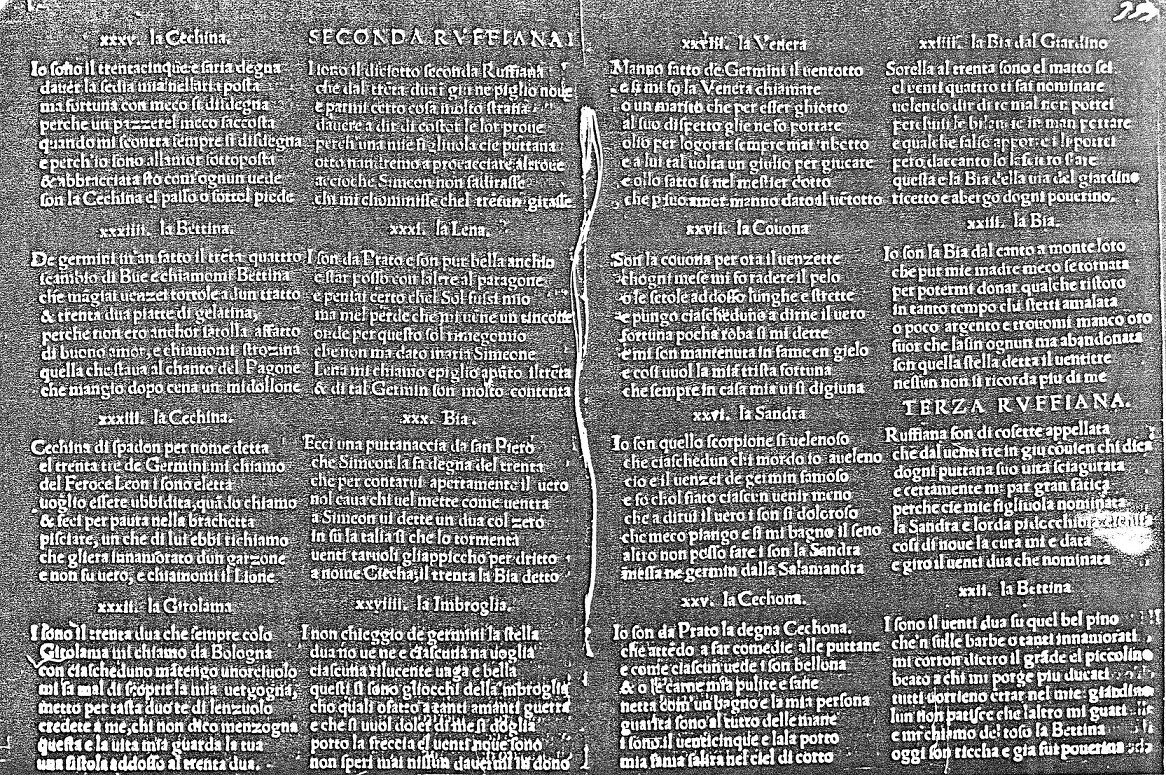 xxxv. la Cechina.
Io sono il trentacinque e saria degna
dauer la sedia mia nellarca posta
ma fortuna con meco si disdegna
perche un pazzerel meco saccosta
quando mi scontra sempre si disdegna
e perch'io sono allamor sottoposta
& abbricciata sto com'ognun uede
son la Cechina el passo o tortel piede
xxxiiii. la Bettina.
De germini m'an fatto il trēta quattro
scambio di Bue e chiamomi Bettina
che magiai uenzei tortole a dun tratto
& trenta dua piatte di gelatina;
perche non ero anchor satolla affatto
di buono amor, e chiamomi strozina
quella che staua al chanto del Pagone
che mangio dopo cena un midollone
xxxiii. la Cechina.
Cechina di spadon per nome detta
el trenta tre de Germini mi chiamo
del Feroce Leon i sono eletta
uoglio essere ubbidita, quādo chiamo
& feci per paura nella brachetta
pisciare, un che di lui ebbi richiamo
che gliera innamorato dun garzone
e non fu uero, e chiamomi il Lione
xxxii. la Girolama
I sono il trenta dua che sempre colo
Girolama mi chiamo da Bologna
con ciascheduno mātengo un orciuolo
mi fa mal di scoprir la mia uergogna,
metto per tasta duo te di lenzuolo
credete a me, chi non dico menzogna
questa e la uita mia guarda la tua
una fistola addosso al trenta dua.
SECONDA RVFFIANA
I sono il diciotto seconda Ruffiana
che dal trēta dua i giu ne piglio noue
e parmi certo cosa molto strana
dauere a dir di costor le lor proue
perch una mie figliuola che puttana
otto nandremo a procacciare altroue
accioche Simeon non fallirasse
chi mi chominisse chel tresun girasse
xxxi. la Lena.
I son da Prato e son pur bella anchio
e star posso con laltre al paragone
e pensai certo chel Sol fussi mio
ma mel perde che mi uene un tincone
onde per questo sol rinnegomio
che non ma dato maria Simeone
Lena mi chiamo e piglio apūto il trēta
& di tal Germin son molto contenta
xxx. Bia.
Ecci una puttanaccia da san Piero
che Simeon la fa degna del trenta
che per contarui apertamente il uero
nol caua chi uel mette come uentra
a Simeon ui dette un dua col zero
in su la talia si che lo tormenta
uenti taruoli gliappiccho per dritto
a nome Ciecha, il trenta la Bia detto
xxviiii. la Imbroglia.
I non chieggio de germini la stella
dua no ue ne e ciascuna na uoglia
ciascuna rilucente uaga e bella
questi si sono gliocchi della imbroglia
cho quali ho fatto a tanti amanti guerra
e che si uuol doler di me si doglia
porto la freccia el uenti noue sono
non speri mai nissun dauermi in dono
xxviii. la Venera
Manno fatto de Germini il uentotto
e si mi fo la Venera chiamare
o un marito che per esser ghiotto
al suo dispetto glie ne fo portare
olio per logorar sempre mai rubotto
e a lui tal uolta un giulio per giucare
e ollo fatto si nel mestier dotto
che p suo amor manno dato il uētotto
xxvii. la Couona
Son la couona per ora il uenzette
chogni mese mi fo radere il pelo
o le setole addosso lunghe e strette
e pungo ciascheduno a dirne il uero
fortuna pocha roba si mi dette
e mi son mantenuta in fame en gielo
e cosi uuol la mia trista fortuna
che sempre in casa mia ui si digiuna
xxvi. la Sandra
Io son quello scorpione si uelenoso
che ciaschedun chi mordo io aueleno
cio e il uenzei de germin famoso
e fo chol fiato ciascun uenir meno
che a dirui il uero i son si doloroso
che meco piango e si mi bagno il seno
altro non posso fare i son la Sandra
messa ne germin dalla Salamandra
xxv. la Cechona.
Io son da Prato la degna Cechona.
che attēdo a far comedie alle puttane
e come ciascun uede i son bellona
& o le carne mia pulite e sane
netta com un bagno e la mia persona
guarita sono al tutto delle mane
i sono il uenticinque e lala porto
mia fania salira nel ciel di corto
xxiiii. la Bia dal Giardino
Sorella al trenta sono el matto sei
el uenti quattro ti fai nominare
uolendo dir di te mal non potrei
perch tu se le bilancie in man portare
e qualche falso appor e i le potrei
pero daccanto lo lascero stare
questa e la Bia della uia del giardino
ricetto e abergo dogni pouerino.
xxiii. la Bia.
Io son la Bia dal canto a monte loro
che pur mie madre meco se tornata
per potermi donar qualche ristoro
in tanto tempo chi stetti amalata
o poco argento e trouomi manco oro
fuor che lasin ognun ma abandonata
son quella stella detta il uentitre
nessun non si ricorda piu di me
TERZA RVFFIANA.
Ruffiana son di cosette appellata
che dal uenti tre in giu couien chi dica
dogni puttana suo uita sciagurata
e certamente mi par gran fatica
perche cie mie figliuola nominata
la Sandra e lorda pidocchiosa
cosi di noue la cura mi e data
e giro il uenti dua che nominata
xxii. la Bettina
I sono il uenti dua su quel bel pino
che'n sulle barbe o tanti innamorati
mi corron dietro il grāde el piccolino
beato a chi mi porge piu ducati
tutti uorrieno entrar nel mie giardino
lun non patisce che laltro mi guati
e mi chiamo del roso la Bettina
oggi son riccha e gia fui pouerina